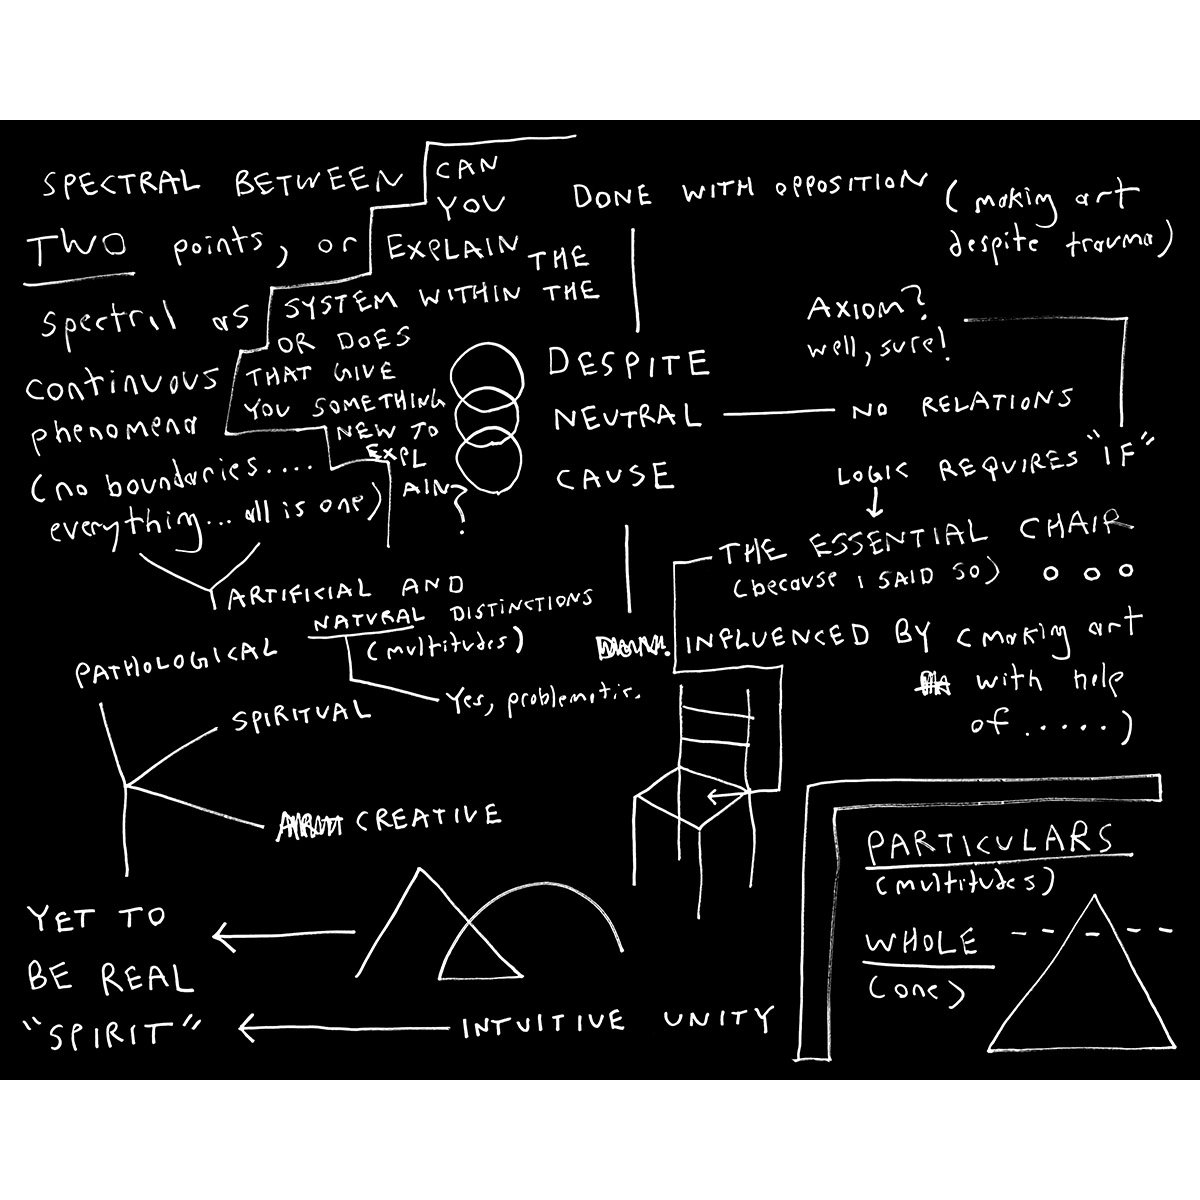 SPECTRAL BETWEEN
TWO points, or
spectral as
continuous
phenomena
(no boundaries....
everything... all is one)
CAN
YOU
EXPLAIN THE
SYSTEM WITHIN THE
OR DOES
THAT GIVE
YOU SOMETHING
NEW TO
EXPL
AIN?
DONE WITH OPPOSITION
(making art
despite trauma)
DESPITE
NEUTRAL
CAUSE
AXIOM?
well, sure!
NO RELATIONS
LOGIC REQUIRES "IF"
THE ESSENTIAL CHAIR
(because I SAID SO)
INFLUENCED BY (making art
with help
of .....)
ARTIFICIAL AND
NATURAL DISTINCTIONS
(multitudes)
Yes, problematic.
PATHOLOGICAL
SPIRITUAL
CREATIVE
YET TO
BE REAL
"SPIRIT"
INTUITIVE UNITY
PARTICULARS
(multitudes)
WHOLE
(one)